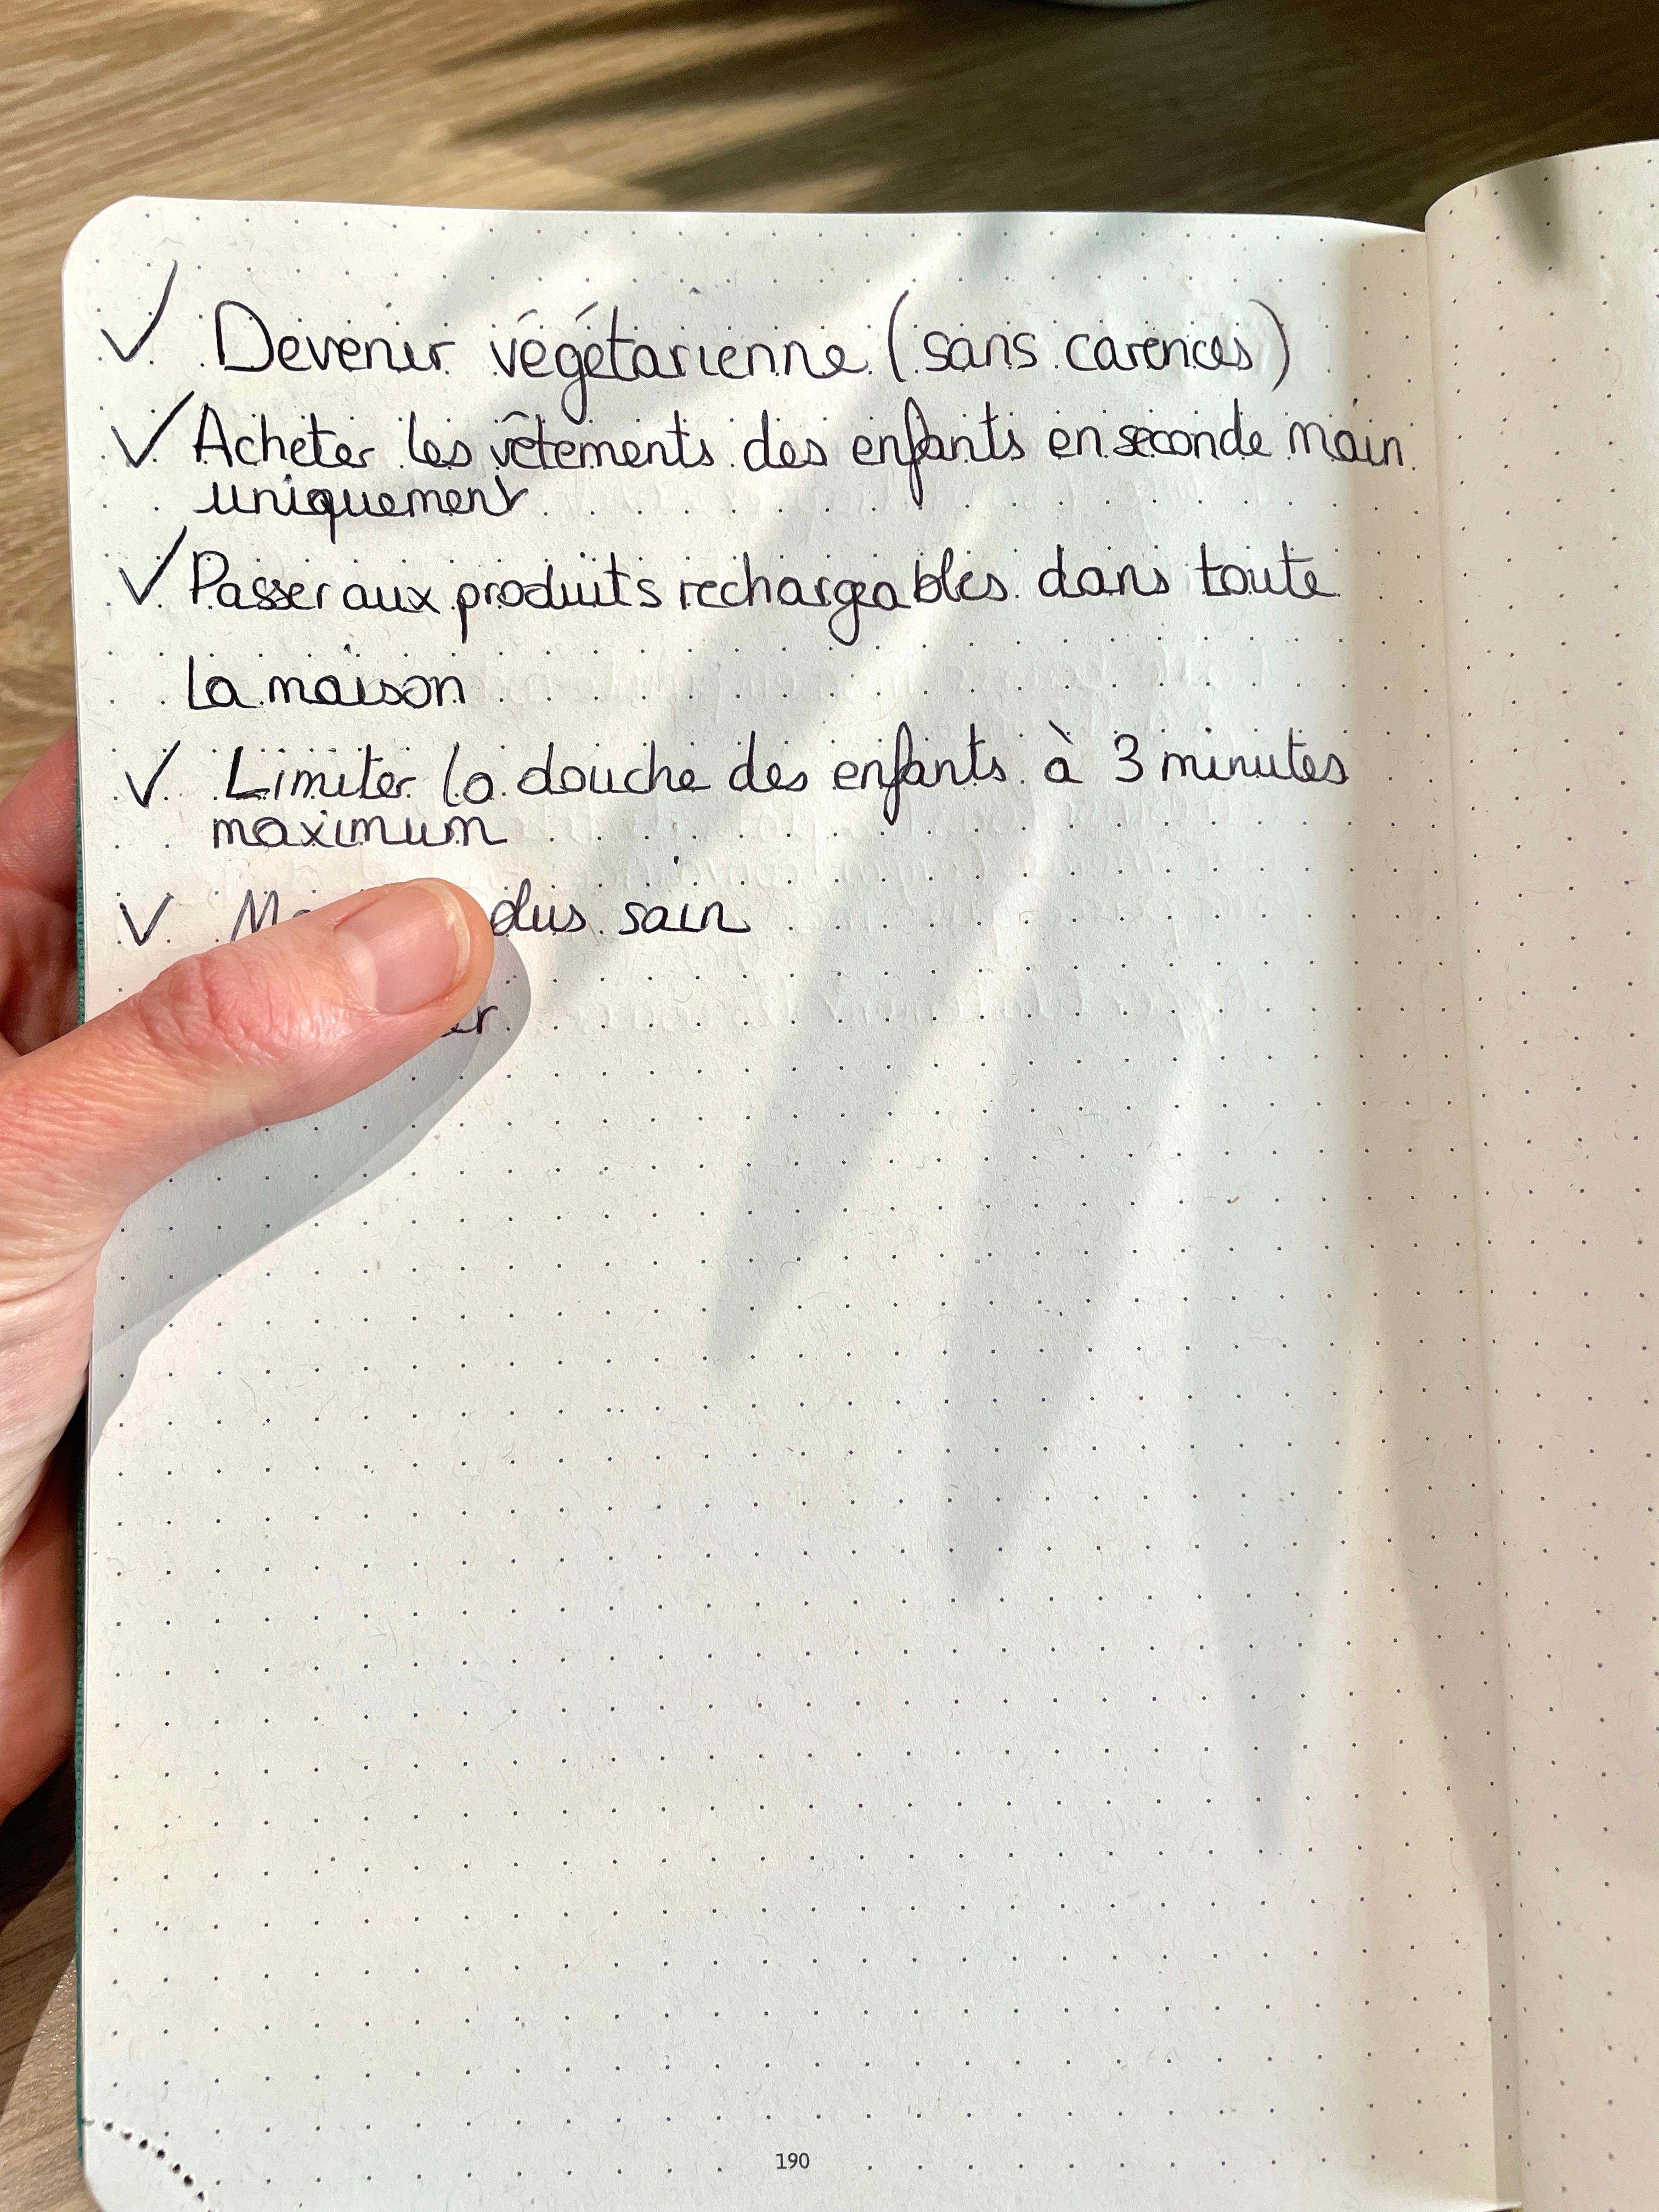 Devenir végétarienne (sans carences)
Acheter les vêtements des enfants en seconde main
uniquement
Passer aux produits rechargeables dans toute
la maison
Limiter la douche des enfants à 3 minutes
maximum
plus sain
190